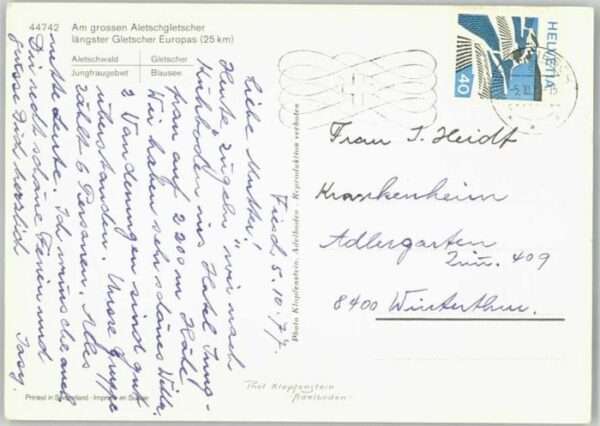 44742 Am grossen Aletschgletscher
längster Gletscher Europas (25 km)
Aletschwald Gletscher
Jungfraugebiet Blausee
HELVETIA
40
Fiesch, 5.10.77.
Liebe Mutter!
Heute zügeln wir nach
Kühboden ins Hotel Jung-
frau auf 2200 m Höhe.
Wir haben sehr schönes Wetter.
2 Wanderungen sind gut
überstanden. Unsere Gruppe
zählt 6 Personen. Alles
nette Leute. Ich wünsche auch
Dir recht schöne Ferien und
grüsse Dich herzlich
Photo Klopfenstein, Adelboden - Reproduktion verboten
Frau I. Heidt
Krankenheim
Adlergarten
Zim. 409
8400 Winterthur.
Phot Klopfenstein
Adelboden
Printed in Switzerland - Imprimé en Suisse